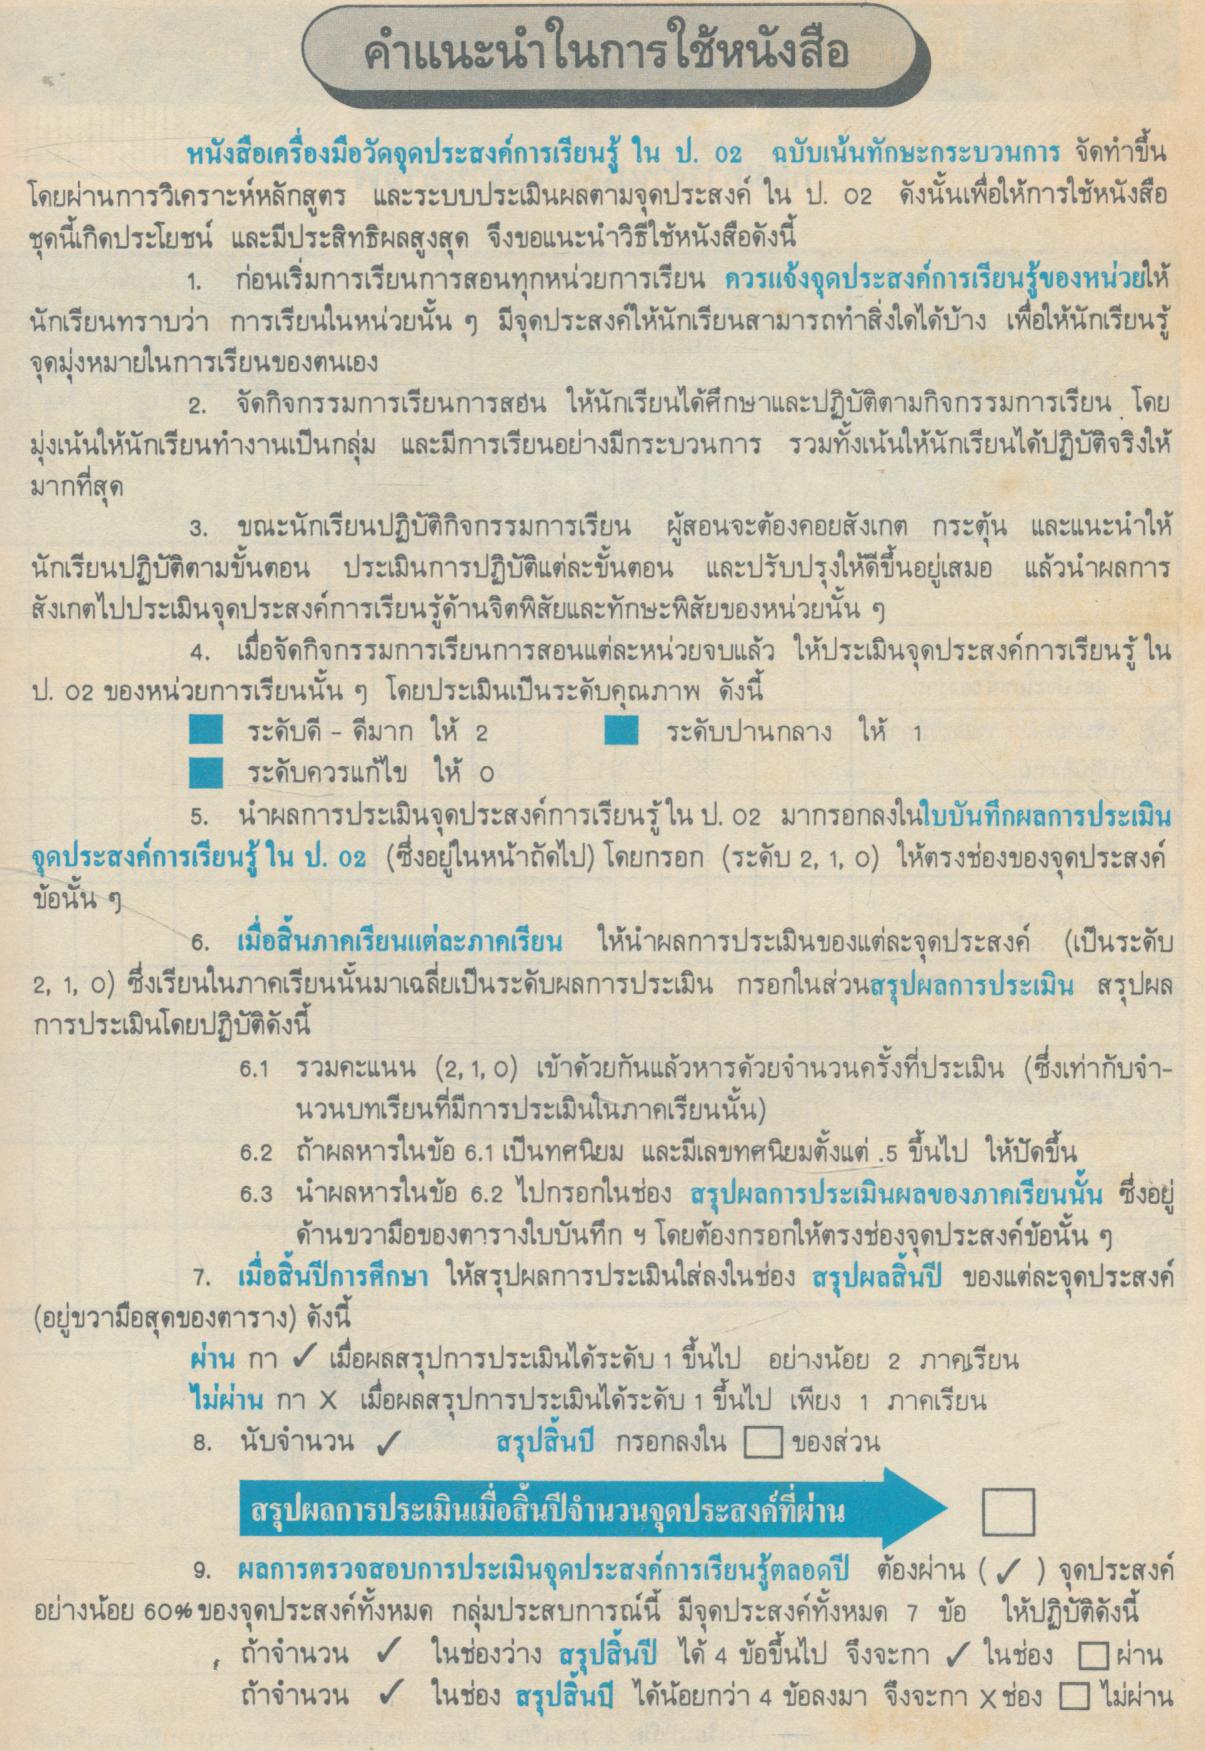 คำแนะนำในการใช้หนังสือ
หนังสือเครื่องมือวัดจุดประสงค์การเรียนรู้ ใน ป. ๐2 ฉบับเน้นทักษะกระบวนการ จัดทำขึ้น
โดยผ่านการวิเคราะห์หลักสูตร และระบบประเมินผลตามจุดประสงค์ ใน ป. ๐2 ดังนั้นเพื่อให้การใช้หนังสือ
ชุดนี้เกิดประโยชน์ และมีประสิทธิผลสูงสุด จึงขอแนะนำวิธีใช้หนังสือดังนี้
1. ก่อนเริ่มการเรียนการสอนทุกหน่วยการเรียน ควรแจ้งจุดประสงค์การเรียนรู้ของหน่วยให้
นักเรียนทราบว่า การเรียนในหน่วยนั้น ๆ มีจุดประสงค์ให้นักเรียนสามารถทำสิ่งใดได้บ้าง เพื่อให้นักเรียนรู้
จุดมุ่งหมายในการเรียนของตนเอง
2. จัดกิจกรรมการเรียนการสอน ให้นักเรียนได้ศึกษาและปฏิบัติตามกิจกรรมการเรียน โดย
มุ่งเน้นให้นักเรียนทำงานเป็นกลุ่ม และมีการเรียนอย่างมีกระบวนการ รวมทั้งเน้นให้นักเรียนได้ปฏิบัติจริงให้
มากที่สุด
3. ขณะนักเรียนปฏิบัติกิจกรรมการเรียน ผู้สอนจะต้องคอยสังเกต กระตุ้น และแนะนำให้
นักเรียนปฏิบัติตามขั้นตอน ประเมินการปฏิบัติแต่ละขั้นตอน และปรับปรุงให้ดีขึ้นอยู่เสมอ แล้วนำผลการ
สังเกตไปประเมินจุดประสงค์การเรียนรู้ด้านจิตพิสัยและทักษะพิสัยของหน่วยนั้น ๆ
4. เมื่อจัดกิจกรรมการเรียนการสอนแต่ละหน่วยจบแล้ว ให้ประเมินจุดประสงค์การเรียนรู้ ใน
ป. 02 ของหน่วยการเรียนนั้น ๆ โดยประเมินเป็นระดับคุณภาพ ดังนี้
ระดับดี - ดีมาก ให้ 2 ระดับปานกลาง ให้ 1
ระดับควรแก้ไข ให้ 0
5. นำผลการประเมินจุดประสงค์การเรียนรู้ ใน ป. 02 มากรอกลงในใบบันทึกผลการประเมิน
จุดประสงค์การเรียนรู้ ใน ป. 02 (ซึ่งอยู่ในหน้าถัดไป) โดยกรอก (ระดับ 2, 1, 0) ให้ตรงช่องของจุดประสงค์
ข้อนั้น ๆ
6. เมื่อสิ้นภาคเรียนแต่ละภาคเรียน ให้นำผลการประเมินของแต่ละจุดประสงค์ (เป็นระดับ
2, 1, 0) ซึ่งเรียนในภาคเรียนนั้นมาเฉลี่ยเป็นระดับผลการประเมิน กรอกในส่วนสรุปผลการประเมิน สรุปผล
การประเมินโดยปฏิบัติดังนี้
6.1 รวมคะแนน (2, 1, 0) เข้าด้วยกันแล้วหารด้วยจำนวนครั้งที่ประเมิน (ซึ่งเท่ากับจำ-
นวนบทเรียนที่มีการประเมินในภาคเรียนนั้น)
6.2 ถ้าผลหารในข้อ 6.1 เป็นทศนิยม และมีเลขทศนิยมตั้งแต่ .5 ขึ้นไป ให้ปัดขึ้น
6.3 นำผลหารในข้อ 6.2 ไปกรอกในช่อง สรุปผลการประเมินผลของภาคเรียนนั้น ซึ่งอยู่
ด้านขวามือของตารางใบบันทึก ฯ โดยต้องกรอกให้ตรงช่องจุดประสงค์ข้อนั้น ๆ
7. เมื่อสิ้นปีการศึกษา ให้สรุปผลการประเมินใส่ลงในช่อง สรุปผลสิ้นปี ของแต่ละจุดประสงค์
(อยู่ขวามือสุดของตาราง) ดังนี้
ผ่าน กา ✓ เมื่อผลสรุปการประเมินได้ระดับ 1 ขึ้นไป อย่างน้อย 2 ภาคเรียน
ไม่ผ่าน กา X เมื่อผลสรุปการประเมินได้ระดับ 1 ขึ้นไป เพียง 1 ภาคเรียน
8. นับจำนวน ✓ สรุปสิ้นปี กรอกลงใน □ ของส่วน
สรุปผลการประเมินเมื่อสิ้นปีจำนวนจุดประสงค์ที่ผ่าน □
9. ผลการตรวจสอบการประเมินจุดประสงค์การเรียนรู้ตลอดปี ต้องผ่าน ( ✓ ) จุดประสงค์
อย่างน้อย 60% ของจุดประสงค์ทั้งหมด กลุ่มประสบการณ์นี้ มีจุดประสงค์ทั้งหมด 7 ข้อ ให้ปฏิบัติดังนี้
ถ้าจำนวน ✓ ในช่องว่าง สรุปสิ้นปี ได้ 4 ข้อขึ้นไป จึงจะกา ✓ ในช่อง □ ผ่าน
ถ้าจำนวน ✓ ในช่อง สรุปสิ้นปี ได้น้อยกว่า 4 ข้อลงมา จึงจะกา X ช่อง □ ไม่ผ่าน